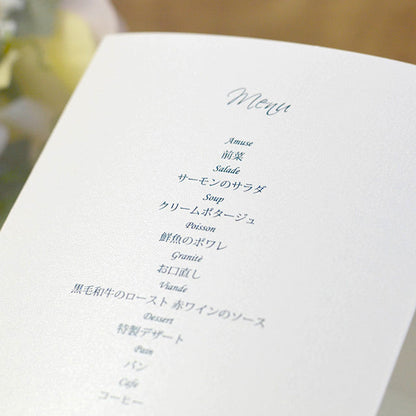 Menu
Amuse
前菜
Salade
サーモンのサラダ
Soup
クリームポタージュ
Poisson
鮮魚のポワレ
Granité
お口直し
Viande
黒毛和牛のロースト 赤ワインのソース
Dessert
特製デザート
Pain
パン
Cafe
コーヒー